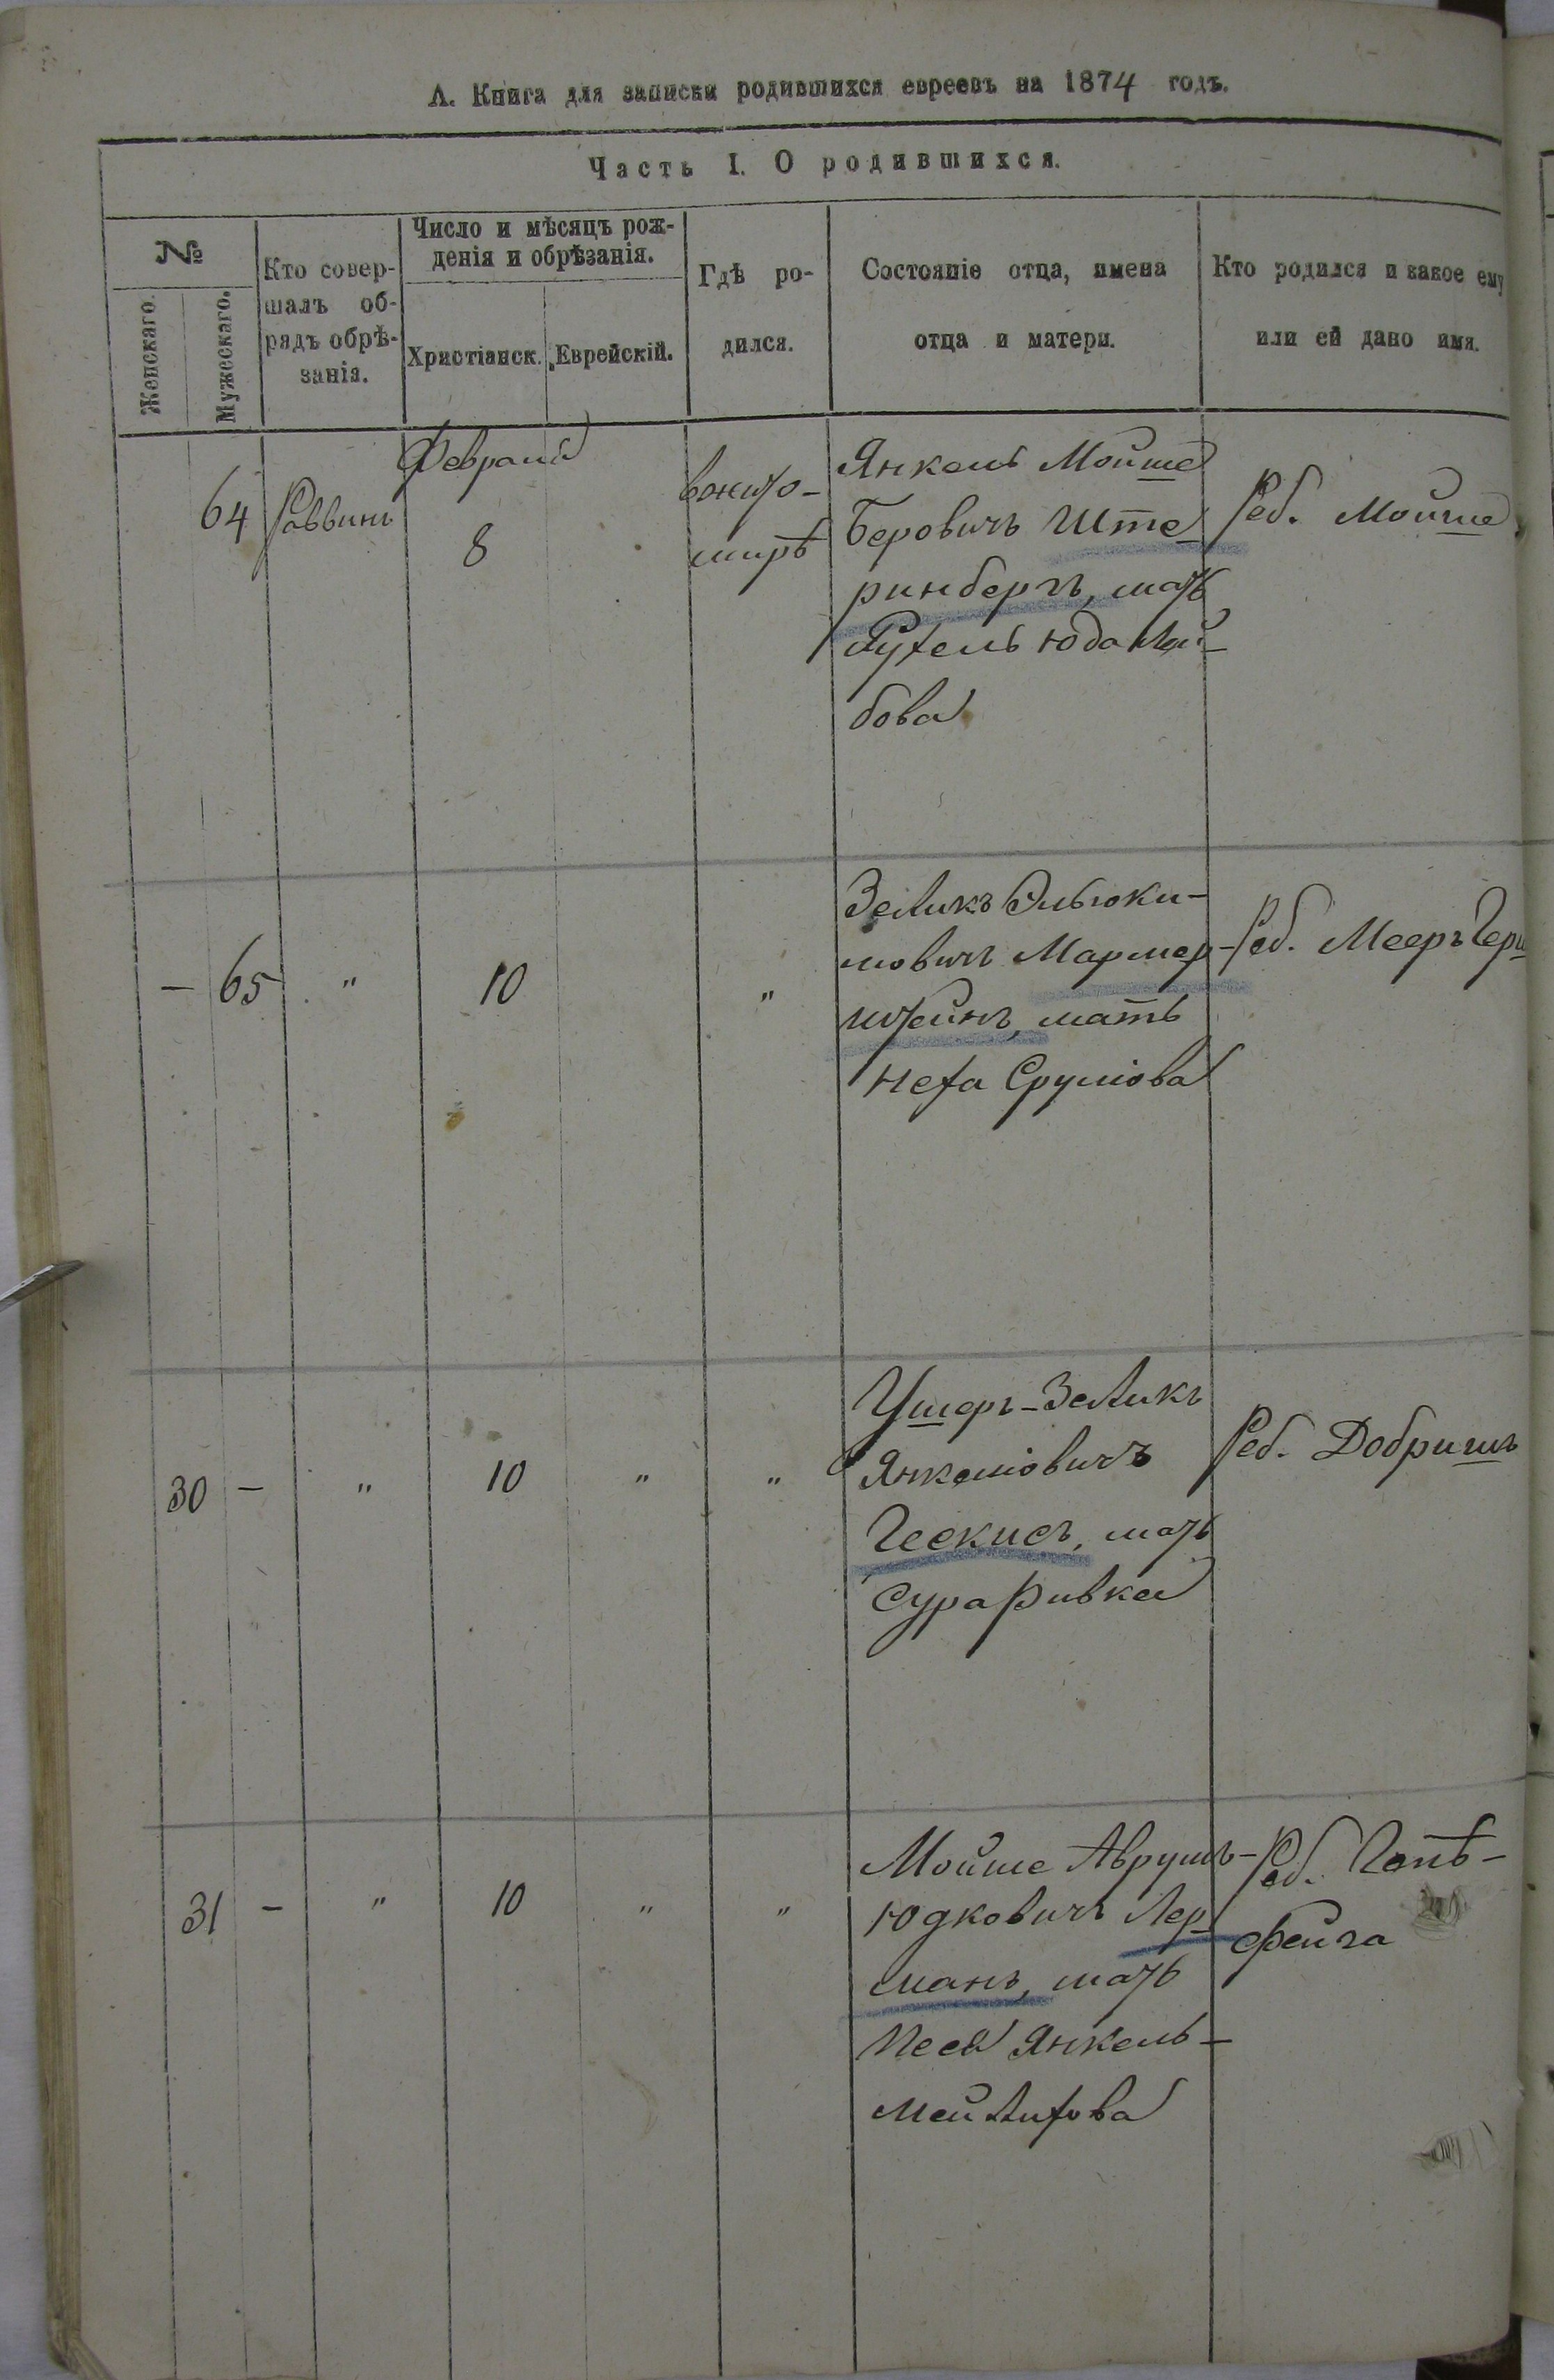 А. Книга для записки родившихся евреевъ на 1874 годъ.
Часть I. О родившихся.
№
Женскаго.
Мужескаго.
Кто совер-
шалъ об-
рядъ обрѣ-
занія.
Число и мѣсяцъ рож-
денія и обрѣзанія.
Христіанск.
Еврейскій.
Гдѣ ро-
дился.
Состояніе отца, имена
отца и матери.
Кто родился и какое ему
или ей дано имя.
64
Раввинъ
Февраля
8
вжито-
мирѣ
Янкель Мойше
БеровичъШте
ринбергъ, мать
Рухель Юда Лей-
бова
Реб. Мойше
- 65 " 10 "
Зеликъ Эльюки-
мовичъ Мармер-
штейнъ, мать
Неха Сруліова
Реб. Мееръ Герш
30 - " 10 " "
Ушеръ-Зеликъ
Янкеліовичъ
Ческисъ, мать
Сура Ривка
Реб. Добришъ
31 - " 10 " "
Мойше Аврумъ-
Юдковичъ Лер
манъ, мать
Песя Янкель-
Мейлихова
Реб.
Фейга